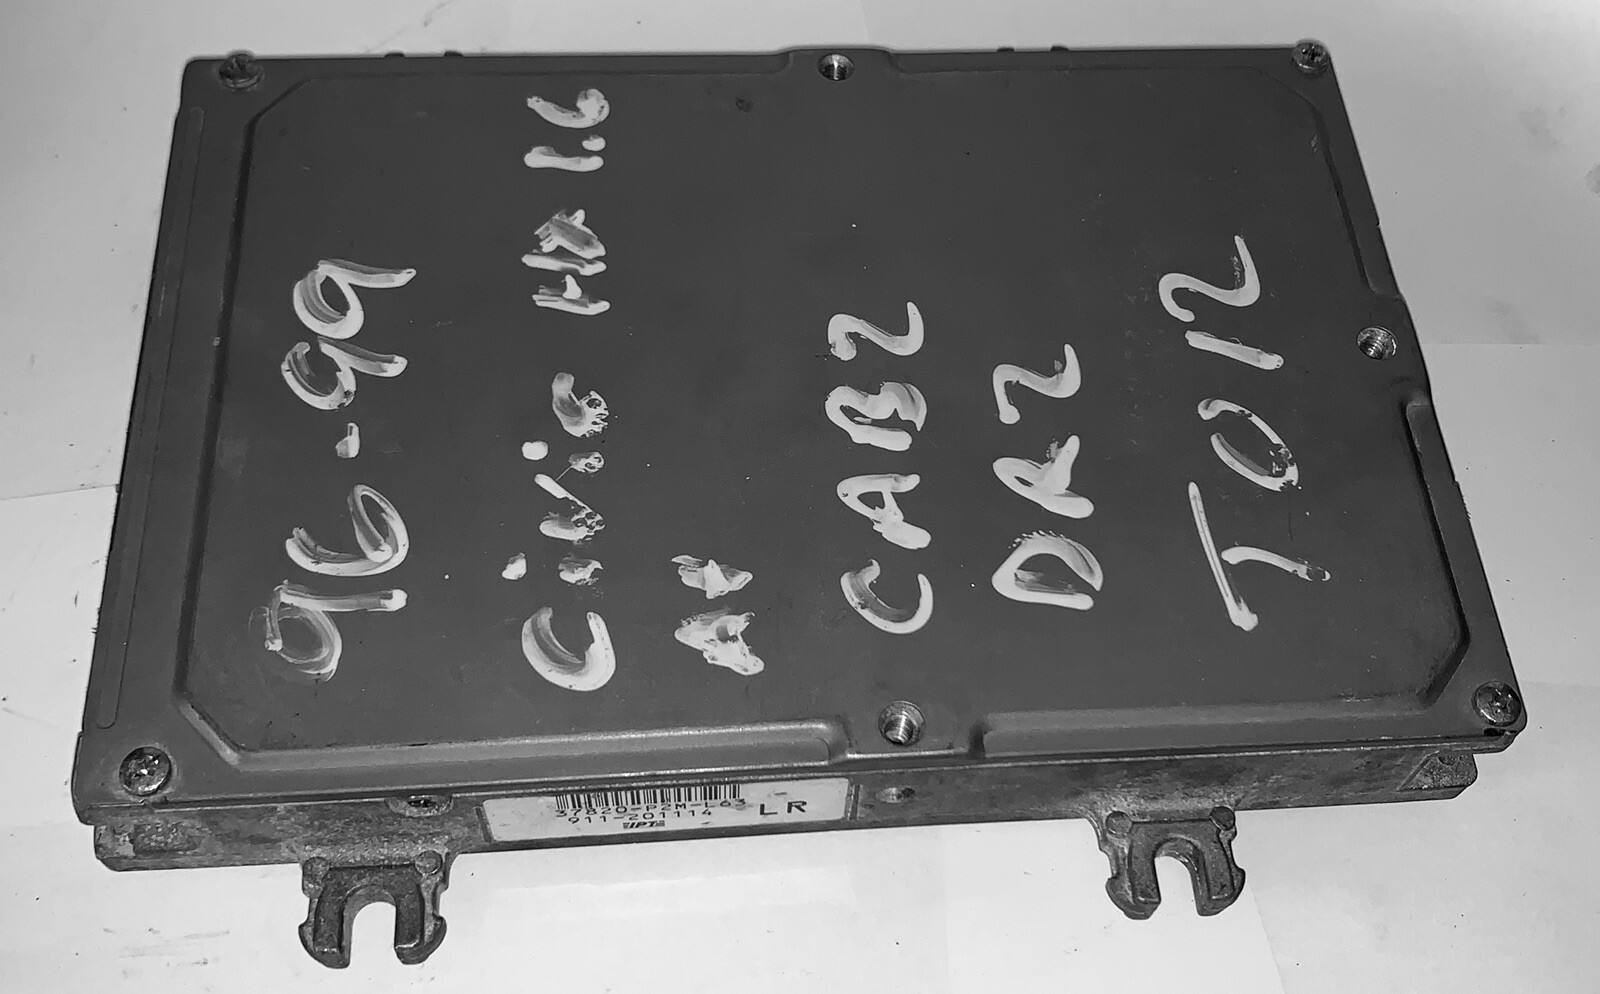 96-99
Civic HX 1.6
At
CAB2
DR2
J012
37820-P2M-L63
911-201114
LR